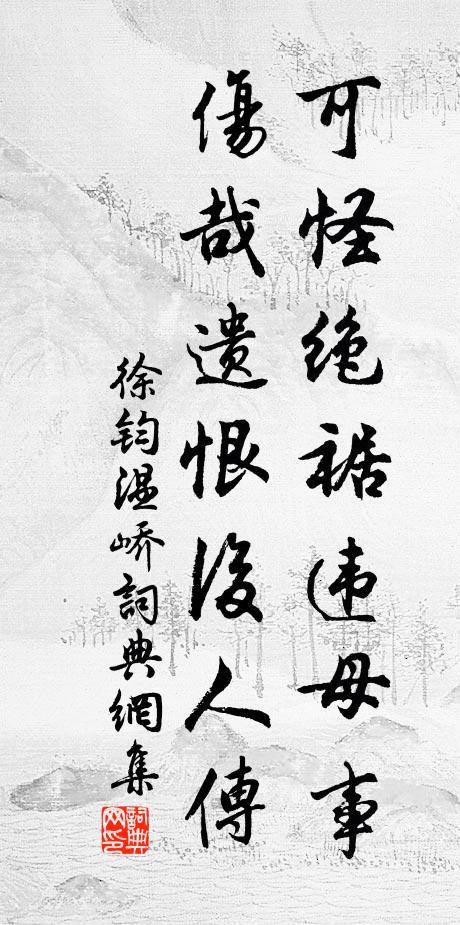 可怪绝裾违母事
傷哉遗恨後人傳
徐鈞温峤詞典網集
詞典网印